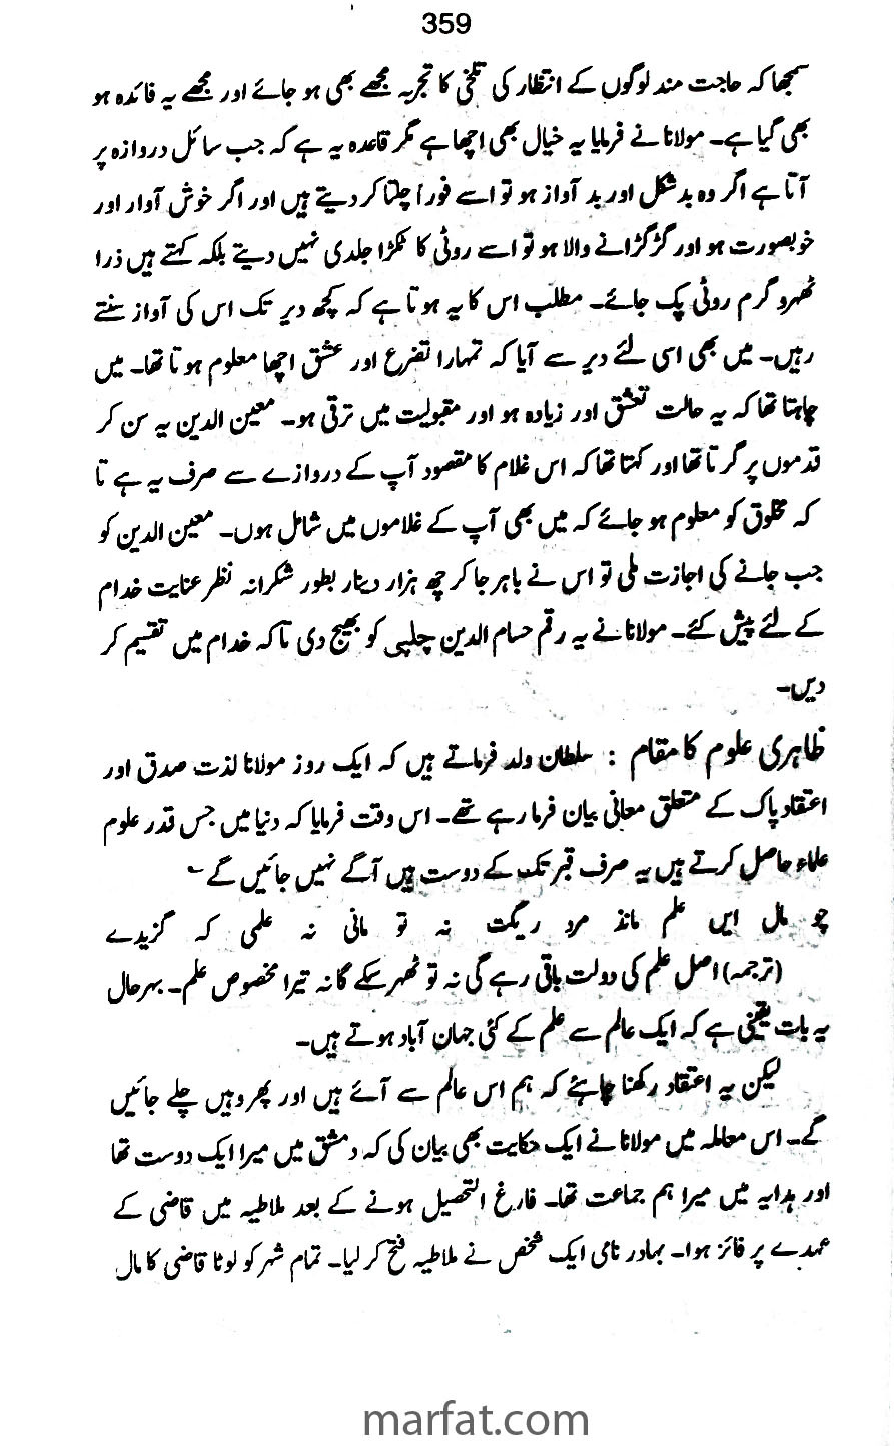 359
سمجھا کہ حاجت مند لوگوں کے انتظار کی تلخی کا تجربہ مجھے بھی ہو جائے اور مجھے یہ فائدہ ہو
بھی گیا ہے۔ مولانا نے فرمایا یہ خیال بھی اچھا ہے مگر قاعدہ یہ ہے کہ جب سائل دروازہ پر
آتا ہے اگر وہ بد شکل اور بد آواز ہو تو اسے فوراً چلتا کر دیتے ہیں اور اگر خوش آواز اور
خوبصورت ہو اور گڑگڑانے والا ہو تو اسے روٹی کا ٹکڑا جلدی نہیں دیتے بلکہ کہتے ہیں ذرا
ٹھہرو گرم روٹی پک جائے۔ مطلب اس کا یہ ہوتا ہے کہ کچھ دیر تک اس کی آواز سنتے
رہیں۔ میں بھی اسی لئے دیر سے آیا کہ تمہارا تضرع اور عشق اچھا معلوم ہوتا تھا۔ میں
چاہتا تھا کہ یہ حالت تعشق اور زیادہ ہو اور مقبولیت میں ترقی ہو۔ معین الدین یہ سن کر
قدموں پر گرتا تھا اور کہتا تھا کہ اس غلام کا مقصود آپ کے دروازے سے صرف یہ ہے تا
کہ مخلوق کو معلوم ہو جائے کہ میں بھی آپ کے غلاموں میں شامل ہوں۔ معین الدین کو
جب جانے کی اجازت ملی تو اس نے باہر جا کر چھ ہزار دینار بطور شکرانہ نظر عنایت خدام
کے لئے پیش کئے۔ مولانا نے یہ رقم حسام الدین چلپی کو بھیج دی تاکہ خدام میں تقسیم کر
دیں۔
ظاہری علوم کا مقام : سلطان ولد فرماتے ہیں کہ ایک روز مولانا لذت صدق اور
اعتقاد پاک کے متعلق معانی بیان فرما رہے تھے۔ اس وقت فرمایا کہ دنیا میں جس قدر علوم
علماء حاصل کرتے ہیں یہ صرف قبر تک کے دوست ہیں آگے نہیں جائیں گے ؎
چو مال ایں علم ماند مرد ریگت نہ تو مانی نہ علمی کہ گزیدے
(ترجمہ) اصل علم کی دولت باقی رہے گی نہ تو ٹھہر سکے گا نہ تیرا مخصوص علم۔ بہرحال
یہ بات یقینی ہے کہ ایک عالم سے علم کے کئی جہان آباد ہوتے ہیں۔
لیکن یہ اعتقاد رکھنا چاہئے کہ ہم اس عالم سے آئے ہیں اور پھر وہیں چلے جائیں
گے۔ اس معاملہ میں مولانا نے ایک حکایت بھی بیان کی کہ دمشق میں میرا ایک دوست تھا
اور ہدایہ میں میرا ہم جماعت تھا۔ فارغ التحصیل ہونے کے بعد ملاطیہ میں قاضی کے
عہدے پر فائز ہوا۔ بہادر نامی ایک شخص نے ملاطیہ فتح کر لیا۔ تمام شہر کو لوٹا قاضی کا مال
marfat.com